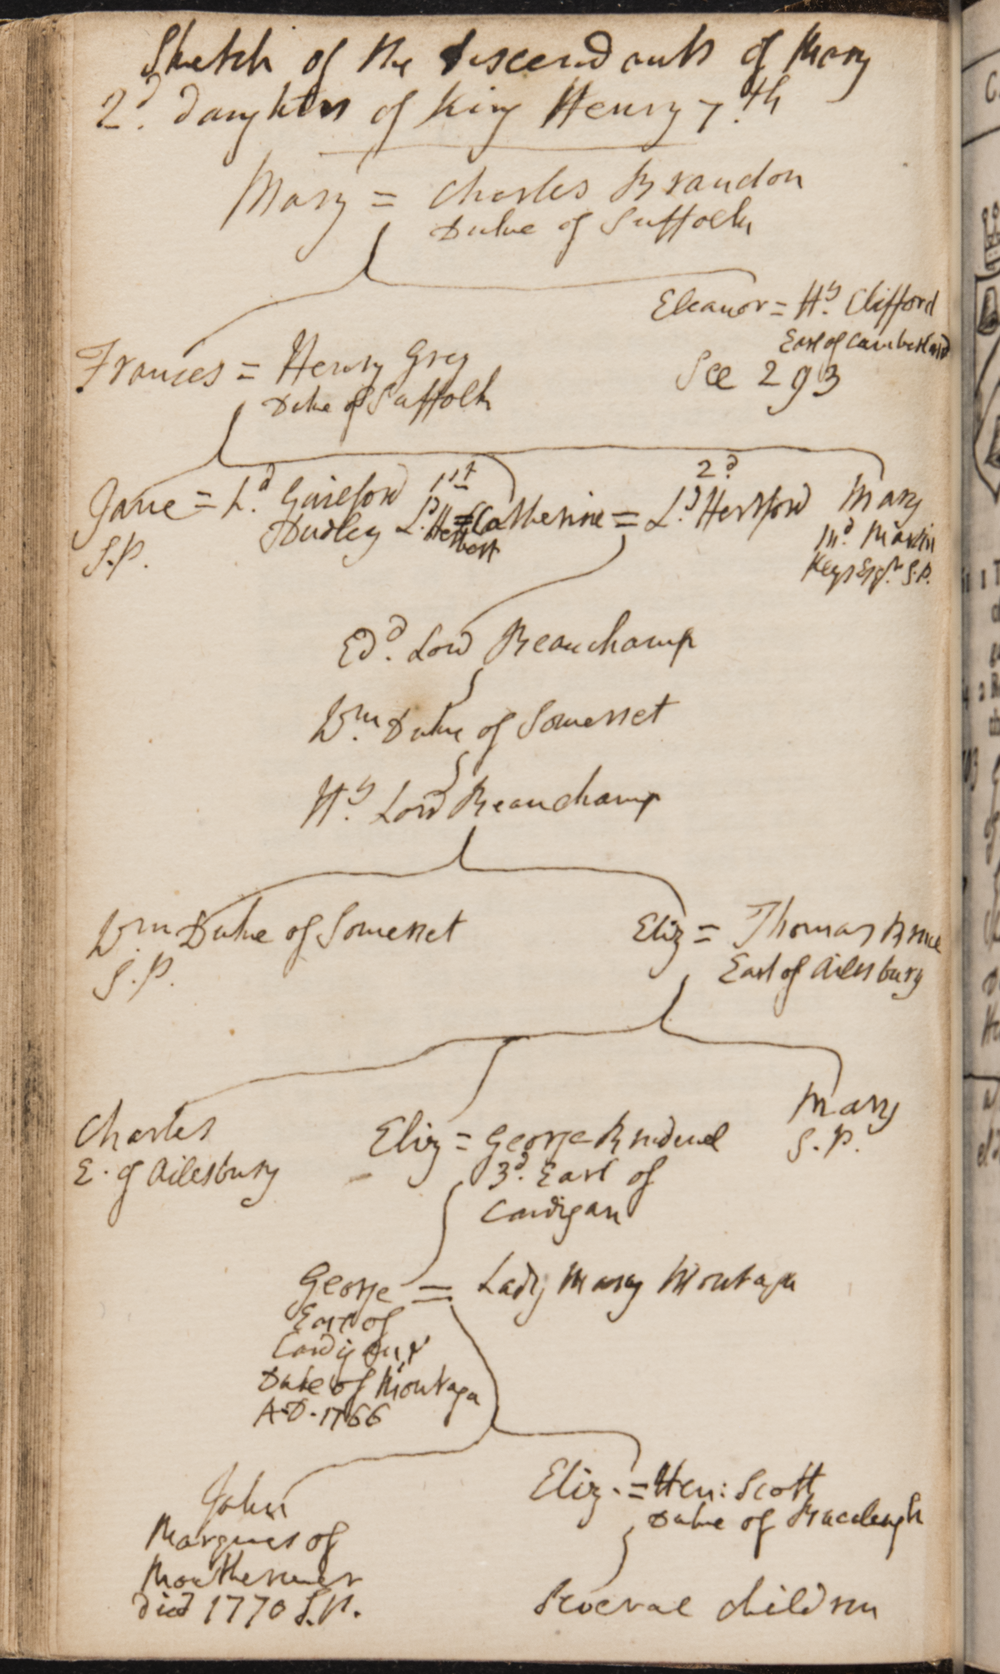 Sketch of the descendants of Mary
2d. daughter of King Henry 7.th
Mary = Charles Brandon
Duke of Suffolk
Eleanor = Hy. Clifford
Earl of Cumberland
See 293
Frances = Henry Grey
Duke of Suffolk
Jane = Ld. Guilford
Dudley
S.P.
1st
Ld. Herbert = Catherine = Ld. Hertford
2d
Mary
Md. Martin
Keys Esqr. S.P.
Edd. Lord Beauchamp
Wm. Duke of Somerset
Hy. Lord Beauchamp
Wm Duke of Somerset
S.P.
Eliz = Thomas Bruce
Earl of Ailesbury
Charles
E. of Ailesbury
Eliz = George Brudenel
3d. Earl of
Cardigan
Mary
S.P.
George = Lady Mary Montagu
Earl of
Cardigan &
Duke of Montagu
A.D. 1766
John
Marquis of
Mouthermer
died 1770 S.P.
Eliz. = Hen: Scott
Duke of Buccleugh
Several children